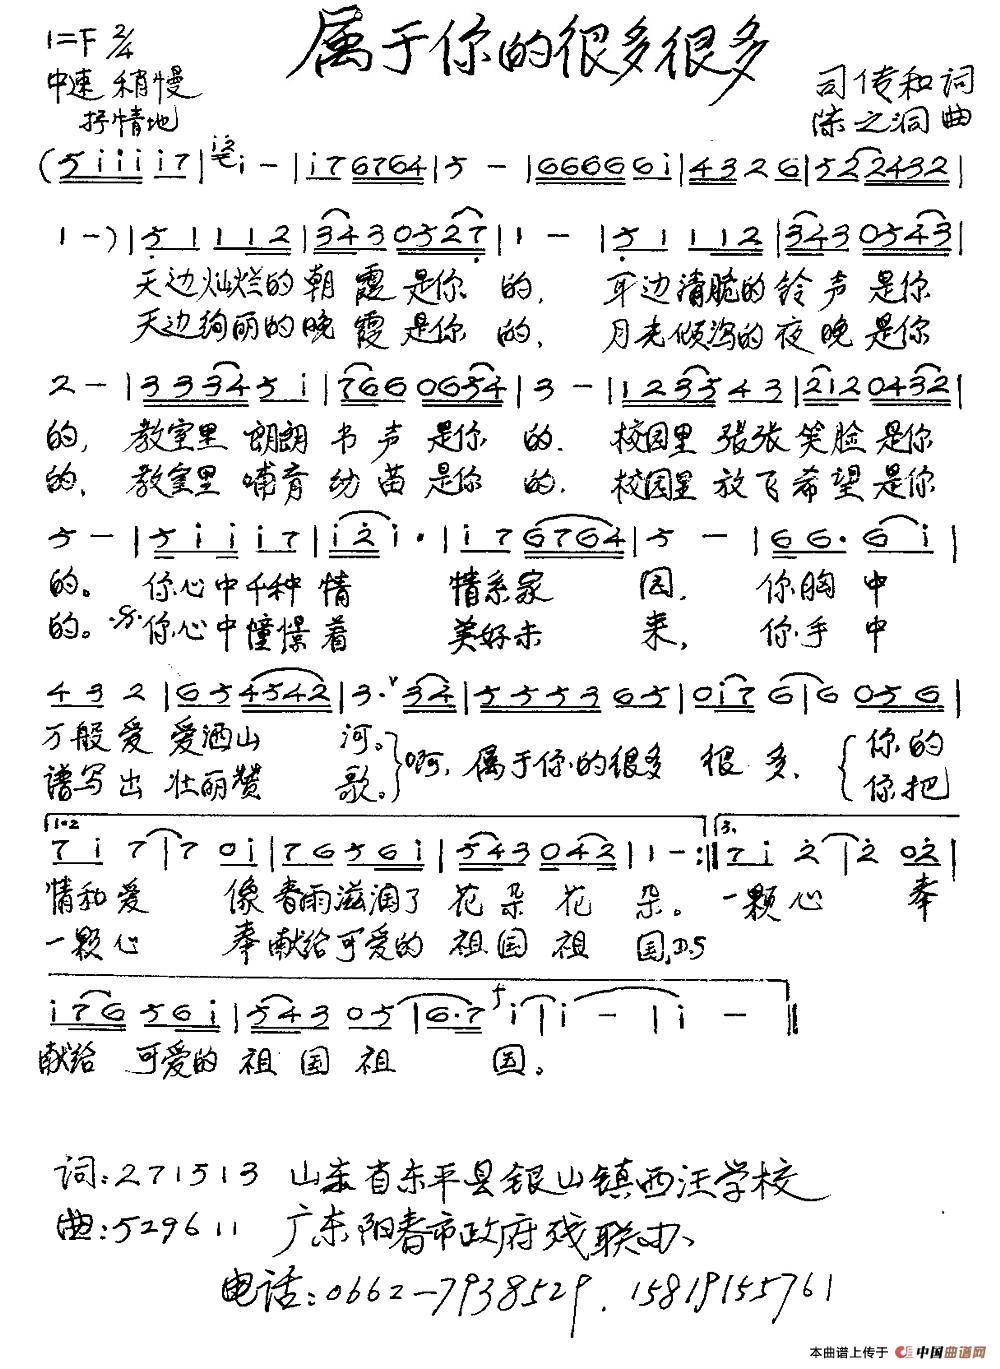 属于你的很多很多
1=F 2/4
中速 稍慢
抒情地
司传和 词
陈之涧 曲
(5 i i i i 7 | i - | i 7 6 7 6 4 | 5 - | 6 6 6 6 6 i | 4 3 2 6 | 5 2 2 4 3 2 |
1 - ) | 5 1 1 1 2 | 3 4 3 0 5 2 7 | 1 - | 5 1 1 1 2 | 3 4 3 0 5 4 3 |
天边灿烂的朝霞是你的, 耳边清脆的铃声是你
天边绚丽的晚霞是你的, 月光倾泻的夜晚是你
2 - | 3 3 3 4 5 i | 7 6 6 0 6 5 4 | 3 - | 1 2 3 5 4 3 | 2 1 2 0 4 3 2 |
的, 教室里朗朗书声是你的. 校园里张张笑脸是你
的, 教室里哺育幼苗是你的. 校园里放飞希望是你
5 - | 5 i i i 7 | i 2 i · | i 7 6 7 6 4 | 5 - | 6 6 · 6 i |
的。 你心中千种情 情系家园, 你胸中
的。 你心中憧憬着 美好未来, 你手中
4 3 2 | 6 5 4 5 4 2 | 3 · 3 4 | 5 5 5 3 6 5 | 0 i 7 6 | 6 0 5 6 |
万般爱 爱洒山河。 啊, 属于你的很多 很多, 你的
谱写出 壮丽赞歌。 你把
1.2 3.
7 i 7 | 7 0 i | 7 6 5 6 i | 5 4 3 0 4 2 | 1 - :‖ 7 i 2 | 2 0 2 |
情和爱 像春雨滋润了花朵花朵。 一颗心 奉
一颗心 奉献给可爱的祖国祖国, D.S
i 7 6 5 6 i | 5 4 3 0 5 | 6 · 7 i | i - | i - ‖
献给 可爱的祖国祖 国。
词: 271513 山东省东平县银山镇西汪学校
曲: 529611 广东阳春市政府残联办
电话: 0662-7938529. 15819155761
本曲谱上传于 中国曲谱网